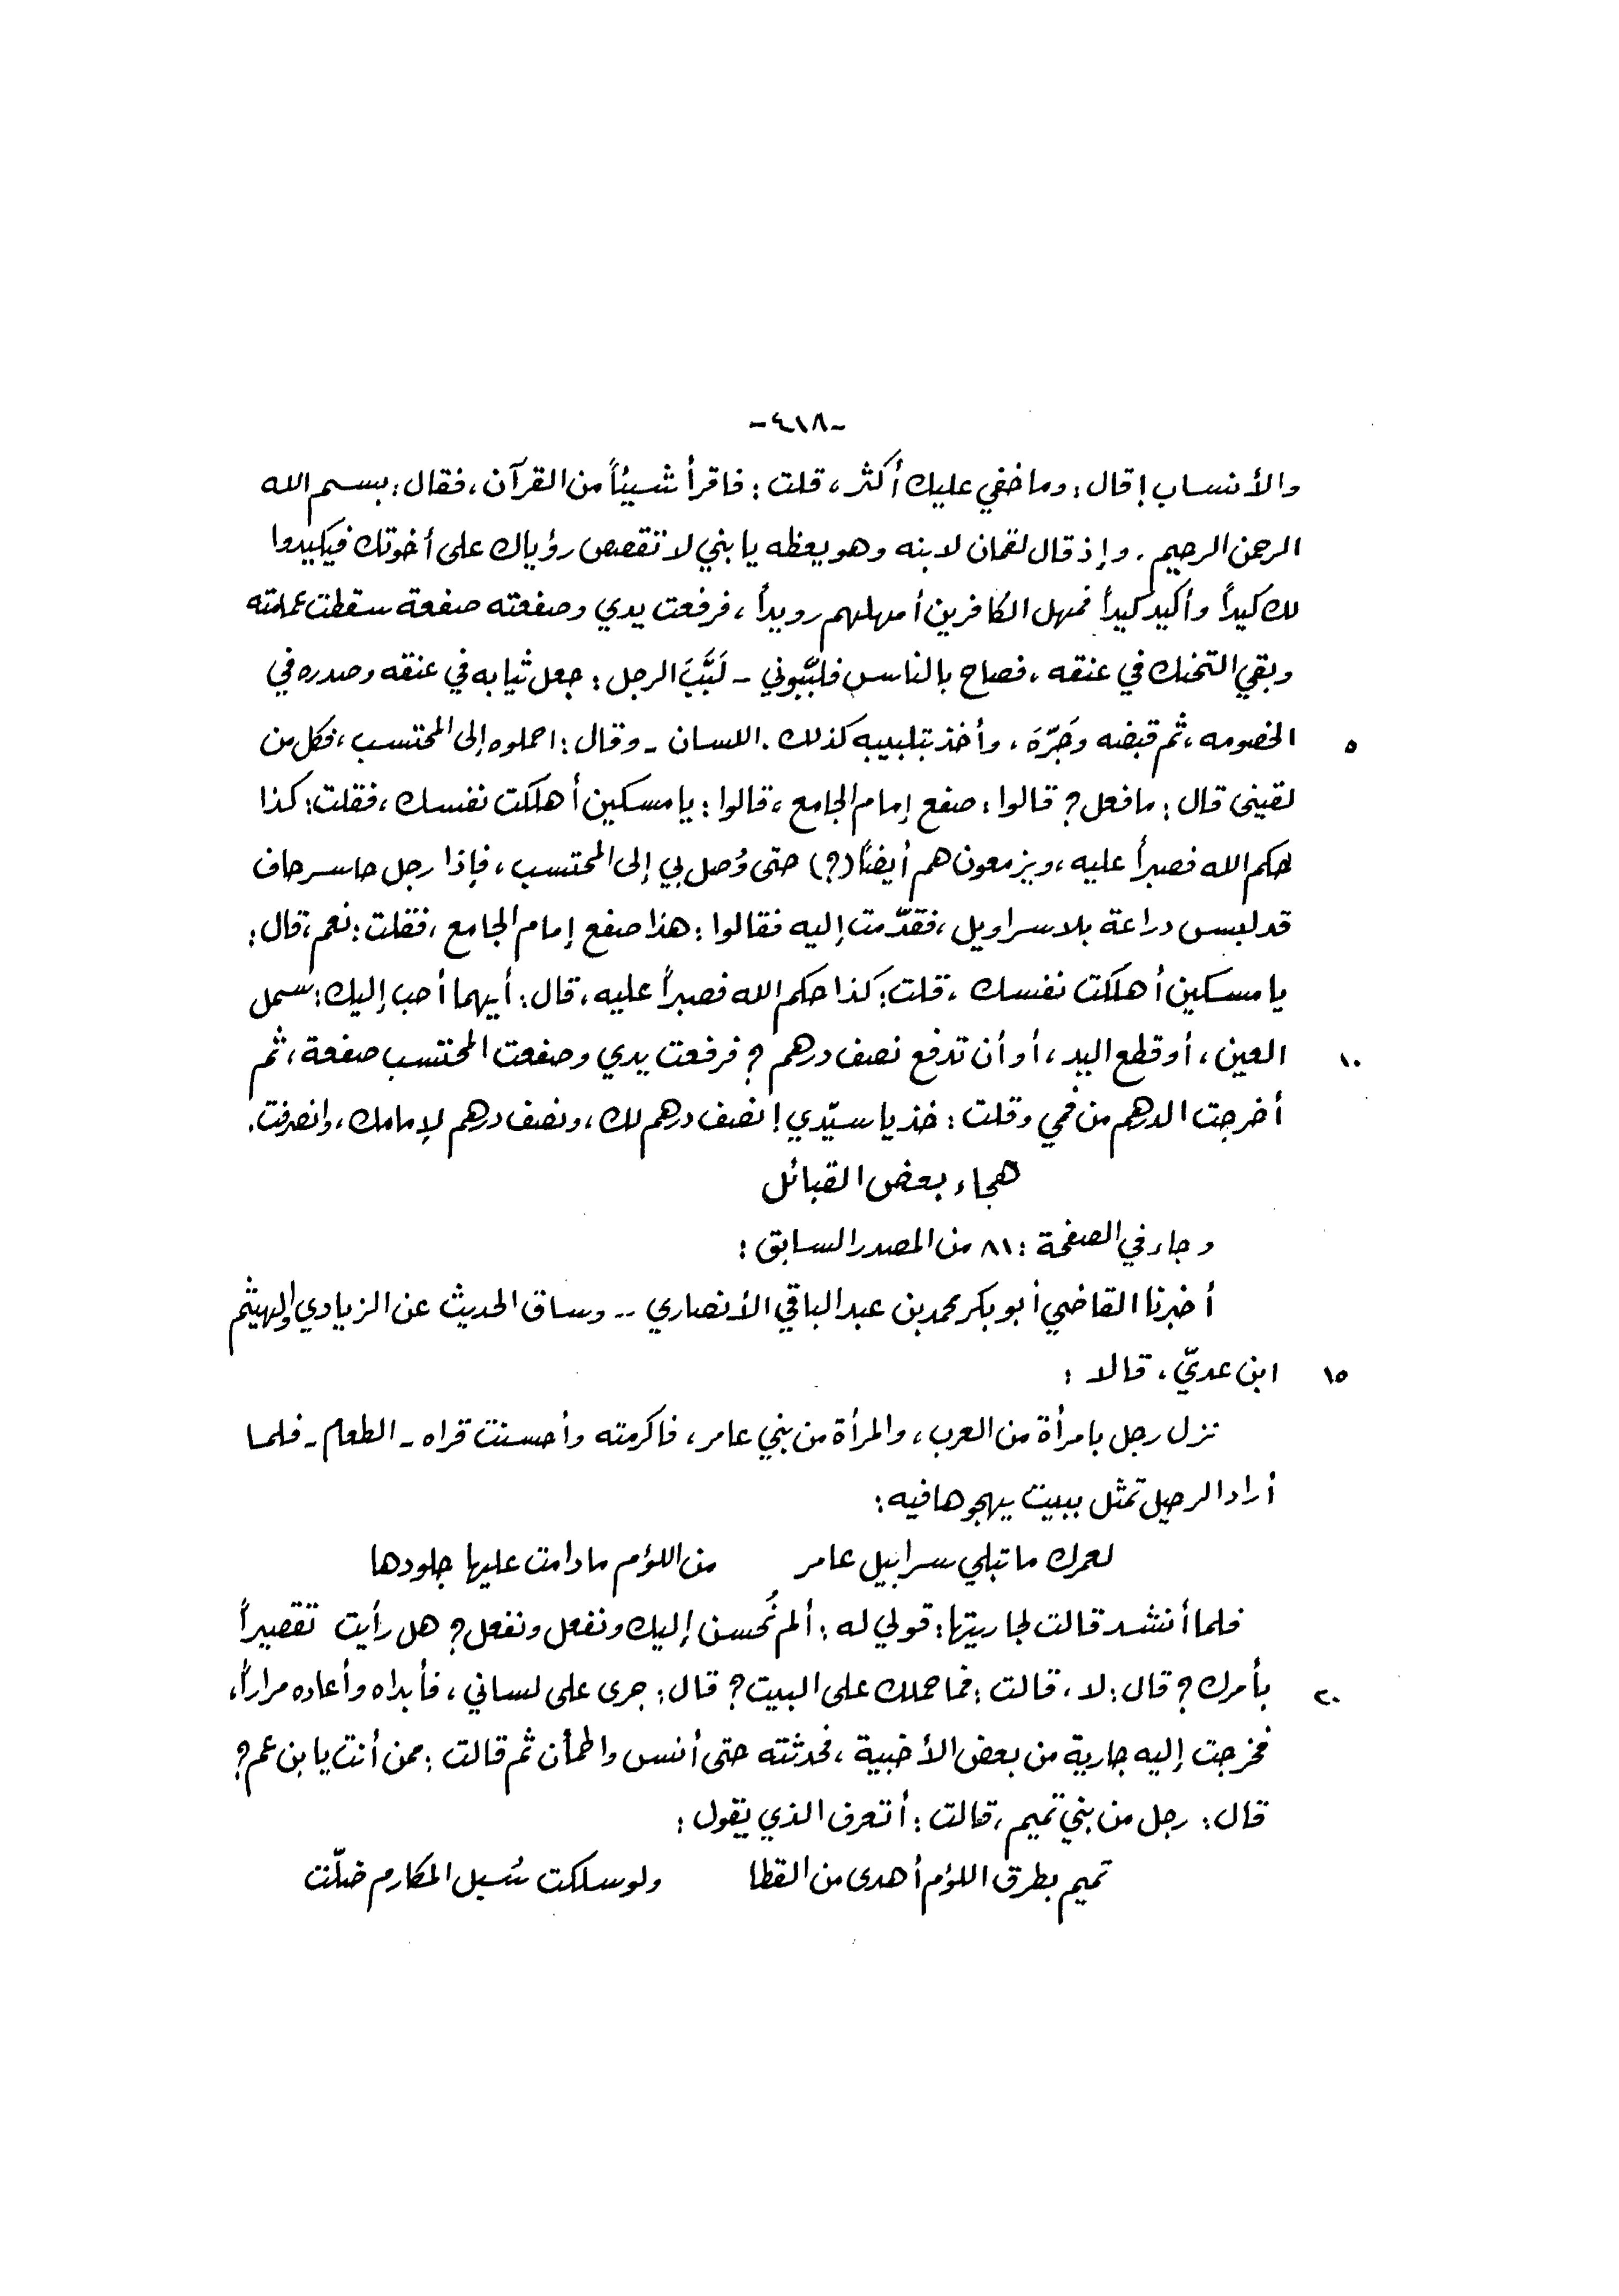 -٤١٨-
والأنساب! قال: وما خفي عليك أكثر، قلت: فاقرأ شيئاً من القرآن، فقال: بسم الله
الرحمن الرحيم. وإذ قال لقمان لابنه وهو يعظه يا بني لا تقصص رؤياك على أخوتك فيكيدوا
لك كيداً وأكيد كيداً فمهل الكافرين أمهلهم رويداً، فرفعت يدي وصفعته صفعة سقطت عمامته
وبقي التحنك في عنقه، فصاح بالناس فلبَّبوني - لَبَّبَ الرجل: جعل ثيابه في عنقه وصدره في
٥ الخصومه، ثم قبضه وجَرّهَ، وأخذ بتلبيبه كذلك. اللسان - وقال: احملوه إلى المحتسب، فكل من
لقيني قال: ما فعل؟ قالوا: صفع إمام الجامع، قالوا: يا مسكين أهلكت نفسك، فقلت: كذا
حكم الله فصبراً عليه، ويزمعون هم أيضاً (؟) حتى وُصل بي إلى المحتسب، فإذا رجل حاسر حاف
قد لبس دراعة بلا سراويل، فقدّمت إليه فقالوا: هذا صفع إمام الجامع، فقلت: نعم، قال:
يا مسكين أهلكت نفسك، قلت: كذا حكم الله فصبراً عليه، قال: أيهما أحب إليك: سمل
١٠ العين، أو قطع اليد، أو أن تدفع نصف درهم؟ فرفعت يدي وصفعت المحتسب صفعة، ثم
أخرجت الدرهم من فمي وقلت: خذ يا سيّدي! نصف درهم لك، ونصف درهم لإمامك، وانصرفت.
هجاء بعض القبائل
وجاء في الصفحة: ٨١ من المصدر السابق:
أخبرنا القاضي أبو بكر محمد بن عبد الباقي الأنصاري -- وساق الحديث عن الزيادي والهيثم
١٥ ابن عديّ، قالا:
نزل رجل بامرأة من العرب، والمرأة من بني عامر، فاكرمته وأحسنت قراه - الطعام - فلما
أراد الرحيل تمثل ببيت يهجوها فيه:
لعمرك ما تبلي سرابيل عامر من اللؤم ما دامت عليها جلودها
فلما أنشد قالت لجاريتها: قولي له: ألم نُحسن إليك ونفعل ونفعل؟ هل رأيت تقصيراً
٢٠ بأمرك؟ قال: لا، قالت: فما حملك على البيت؟ قال: جرى على لساني، فأبداه وأعاده مراراً،
فخرجت إليه جارية من بعض الأخبية، فحدثته حتى أنس واطمأن ثم قالت: ممن أنت يا بن عم؟
قال: رجل من بني تميم، قالت: أتعرف الذي يقول:
تميم بطرق اللؤم أهدى من القطا ولو سلكت سُبل المكارم ضلّت